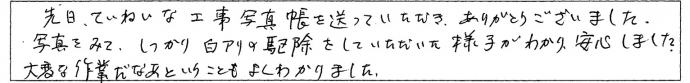 先日、ていねいな工事写真帳を送っていただき、ありがとうございました。
写真をみて、しっかり白アリの駆除をしていただいた様子がわかり、安心しました
大変な作業だなあということもよくわかりました。